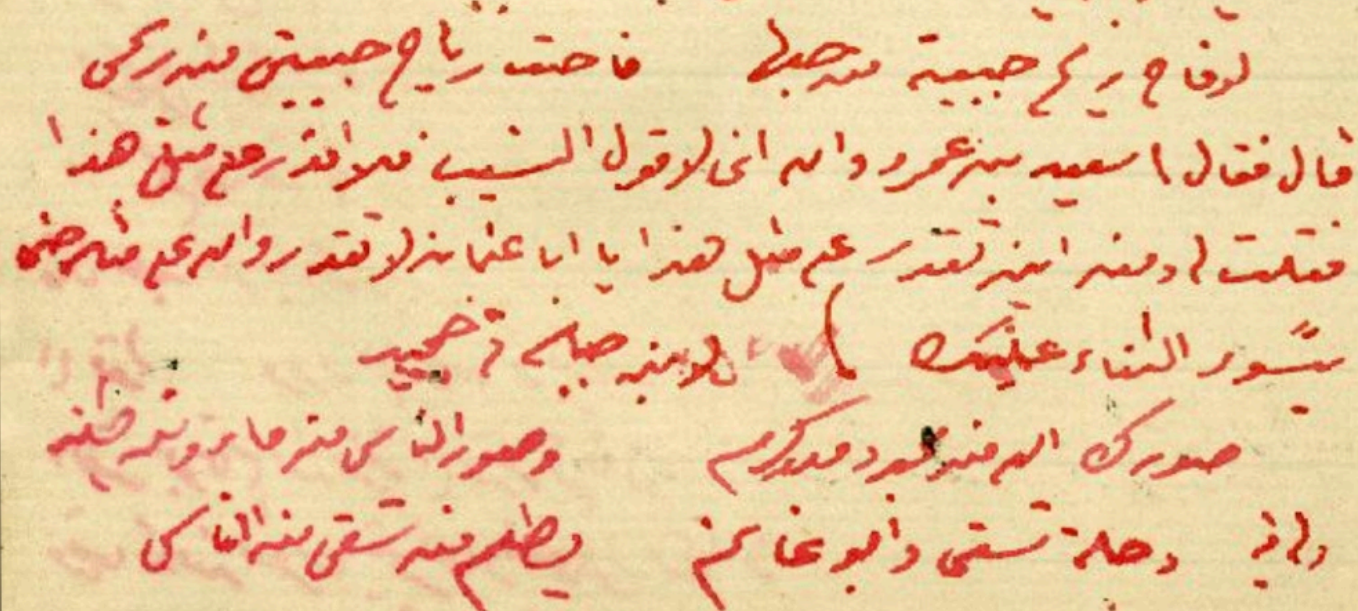 لو فاح ريح حبيبة من حبها فاحت رياح حبيبتي من ريحي
قال فقال سعيد بن عمرو والله اني لا قول النسيب فلا اقدر على مثل هذا
فقلت له ومن اين تقدر على مثل هذا يا ابا عثمان لا تقدر والله على مثله حتى
يسور الثناء عليك لابن جبلة في حميد
صورك الله من جود ومن كرم وصور الناس من ماء ومن طين
دجلة تسقى وابو غانم يطعم من تسقى من الناس